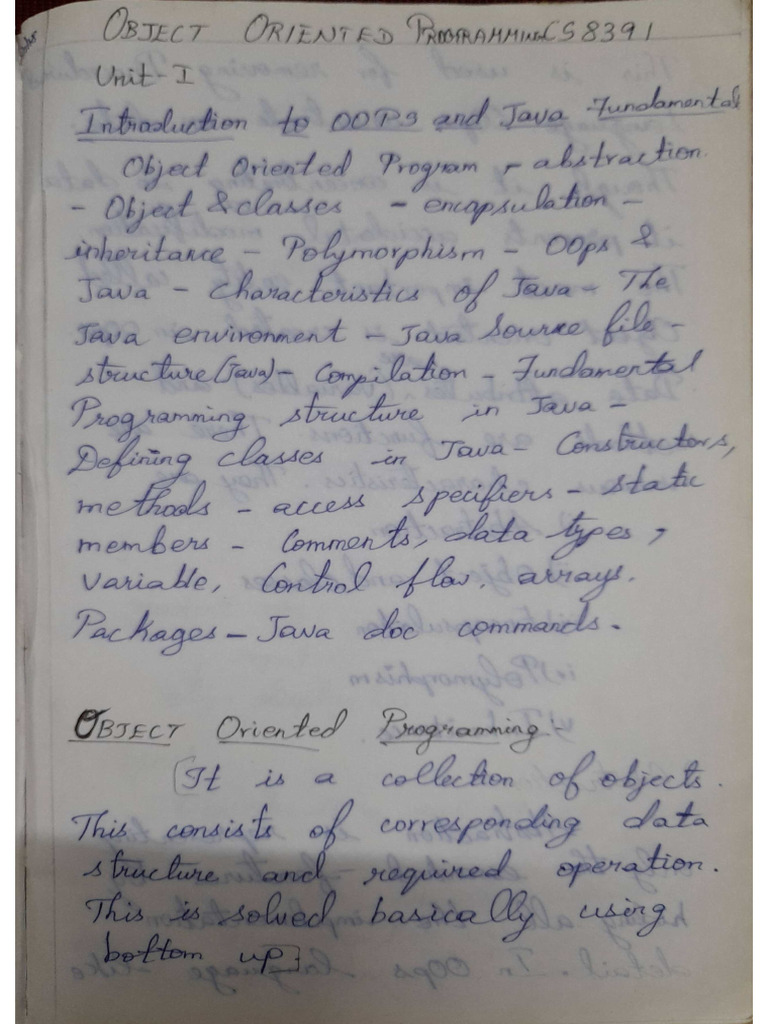 OBJECT ORIENTED PROGRAMMING CS8391
Unit-I
Introduction to OOPS and Java Fundamental
Object Oriented Program - abstraction.
- Object & classes - encapsulation -
inheritance - Polymorphism - OOps &
Java - Characteristics of Java - The
Java environment - Java Source file -
structure (Java) - Compilation - Fundamental
Programming structure in Java -
Defining classes in Java - Constructors,
methods - access specifiers - static
members - Comments, data types,
Variable, Control flow, arrays.
Packages - Java doc commands.
OBJECT Oriented Programming
[It is a collection of objects.
This consists of corresponding data
structure and required operation.
This is solved basically using
bottom up]